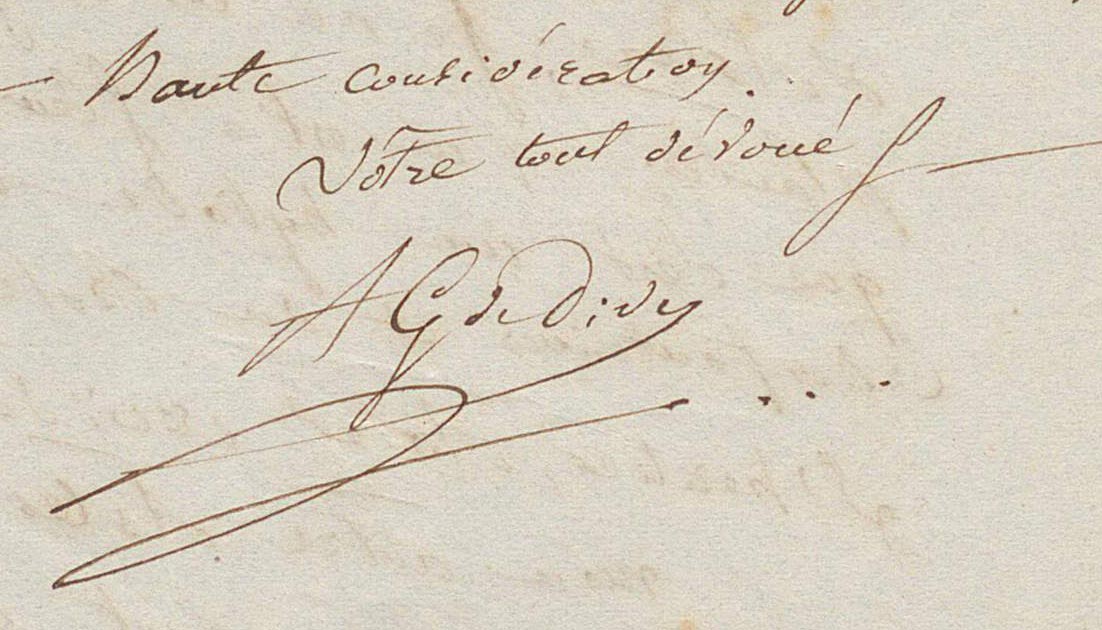 haute considération.
Vôtre tout dévoué
A G de Divy